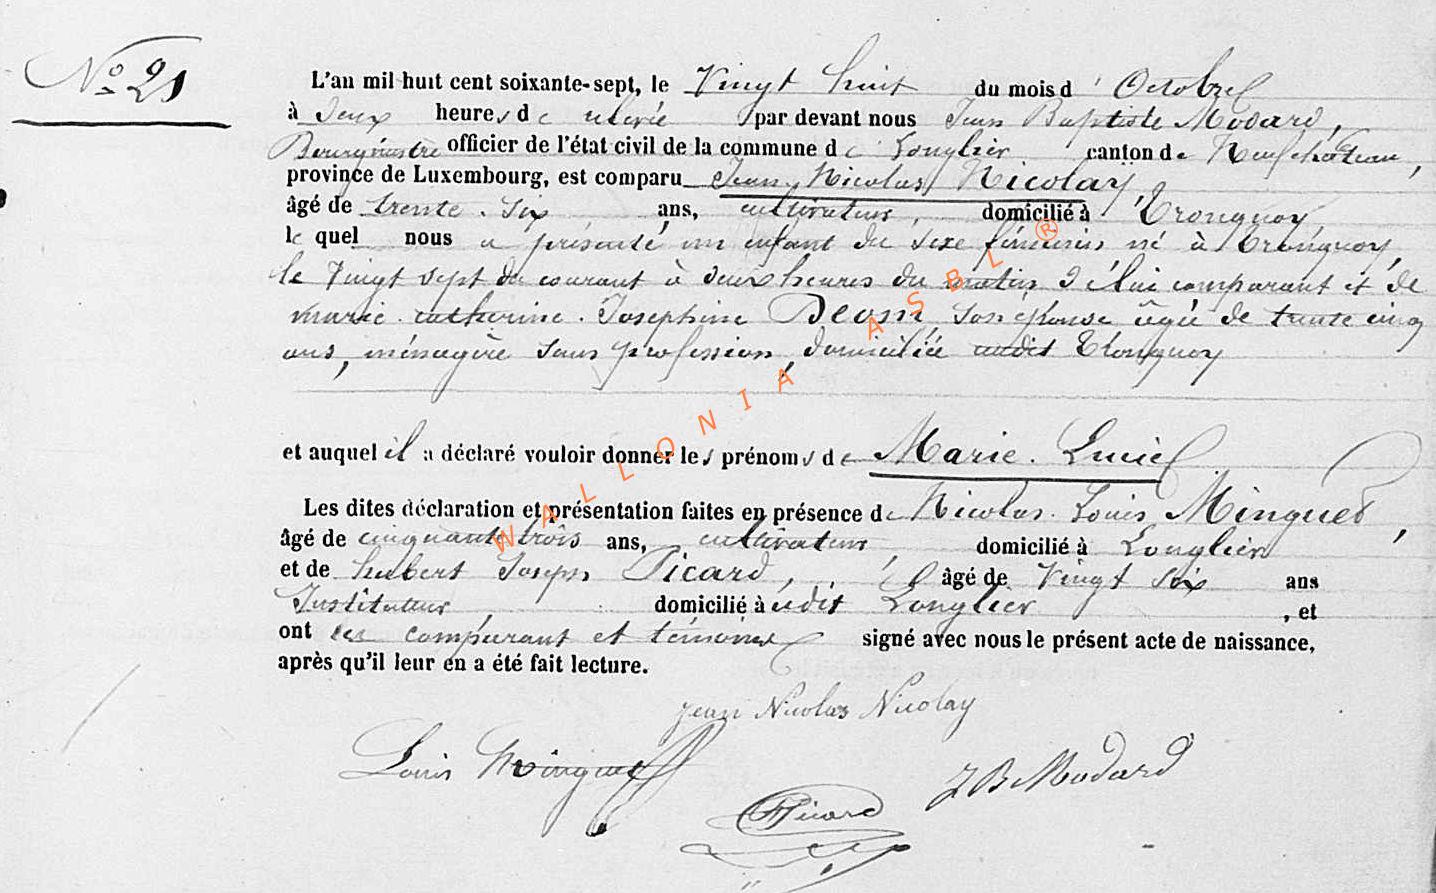 N° 21
L'an mil huit cent soixante-sept, le Vingt huit du mois d' Octobre
à deux heures de relevée par devant nous Jean Baptiste Modard,
Bourgmestre officier de l'état civil de la commune de Longlier canton de Neufchâteau,
province de Luxembourg, est comparu Jean Nicolas Nicolay
âgé de trente six ans, cultivateur, domicilié à Tronquoy
le quel nous a présenté un enfant du sexe féminin né à Tronquoy,
le Vingt sept du courant à deux heures du matin de lui comparant et de
marie catherine Josephine Deom son épouse âgée de trente cinq
ans, ménagère sans profession, domiciliée audit Tronquoy
et auquel il a déclaré vouloir donner les prénoms de Marie. Lucie
Les dites déclaration et présentation faites en présence de Nicolas Louis Minguet,
âgé de cinquante trois ans, cultivateur, domicilié à Longlier
et de hubert Joseph Picard, âgé de Vingt six ans
Instituteur domicilié à udit Longlier, et
ont les comparant et témoins signé avec nous le présent acte de naissance,
après qu'il leur en a été fait lecture.
Jean Nicolas Nicolay
Louis Minguet
JB Modard
Picard
WALLONIA ASBL ®